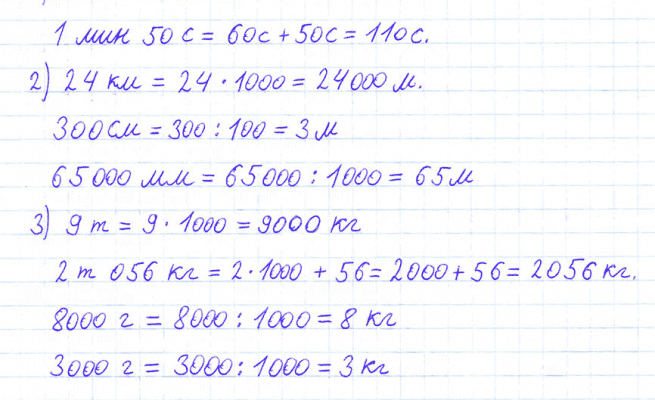 1 мин 50 с = 60с + 50с = 110с.
2) 24 км = 24 · 1000 = 24000 м.
300см = 300 : 100 = 3 м
65000 мм = 65000 : 1000 = 65м
3) 9 т = 9 · 1000 = 9000 кг
2 т 056 кг = 2 · 1000 + 56 = 2000 + 56 = 2056 кг.
8000 г = 8000 : 1000 = 8 кг
3000 г = 3000 : 1000 = 3 кг